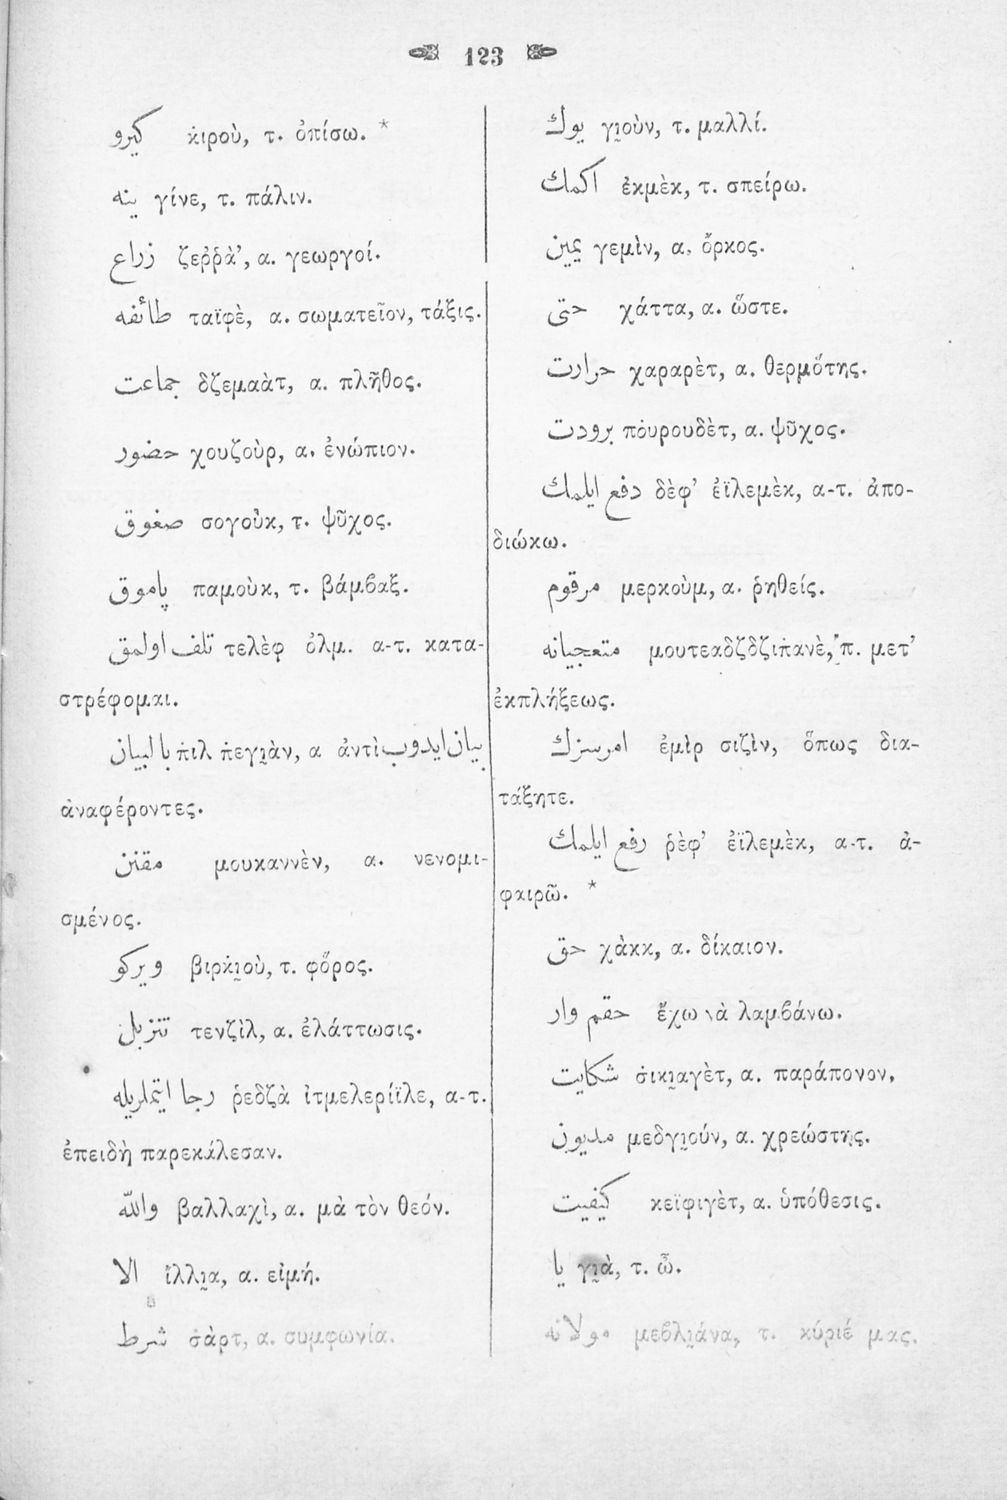 123
كيرو κ̇ιροὺ, τ. ὀπίσω. *
ينه γίνε, τ. πάλιν.
زراع ζεῤῥὰʼ, α. γεωργοί.
طائفه ταϊφὲ, α. σωματεῖον, τάξις.
جماعت δζεμαὰτ, α. πλῆθος.
حضور χουζοὺρ, α. ἐνώπιον.
صغوق σογοὺκ, τ. ψῦχος.
پاموق παμοὺκ, τ. βάμβαξ.
تلف اولمق τελὲφ ὀλμ. α-τ. κατα-
στρέφομαι.
با لبيان π̇ιλ π̇εγι̯ὰν, α ἀντὶ بيان ايدوب
ἀναφέροντες.
مقنن μουκαννὲν, α. νενομι-
σμένος.
ويركو βιρκ̇ι̯οὺ, τ. φόρος.
تنزيل τενζὶλ, α. ἐλάττωσις.
رجا ايتملريله ῥεδζὰ ἰτμελερίϊλε, α-τ.
ἐπειδὴ παρεκάλεσαν.
والله βαλλαχὶ, α. μὰ τὸν θεόν.
الا ἴλλι̯α, α. εἰμή.
شرط σ̇ὰρτ, α. συμφωνία.
يوك γι̯οὺν, τ. μαλλί.
اكمك ἐκμὲκ, τ. σπείρω.
يمين γεμὶν, α. ὅρκος.
حتى χάττα, α. ὥστε.
حرارت χαραρὲτ, α. θερμότης.
برودت π̇ουρουδὲτ, α. ψῦχος.
دفع ايلمك δὲφʼ ἐϊλεμὲκ, α-τ. ἀπο-
διώκω.
مرقوم μερκοὺμ, α. ῥηθείς.
متعجبانه μουτεαδζδζιπ̇ανὲ, π. μετʼ
ἐκπλήξεως.
امرسزك ἐμὶρ σιζὶν, ὅπως δια-
τάξητε.
رفع ايلمك ῥὲφʼ ἐϊλεμὲκ, α-τ. ἀ-
φαιρῶ. *
حق χὰκκ, α. δίκαιον.
حقم وار ἔχω νὰ λαμβάνω.
شكايت σ̇ικι̯αγὲτ, α. παράπονον,
مديون μεδγι̯ούν, α. χρεώστης.
كيفيت κεϊφιγὲτ, α. ὑπόθεσις.
يا γι̯ὰ, τ. ὦ.
مولانه μεβλι̯άνα, τ. κύριέ μας.